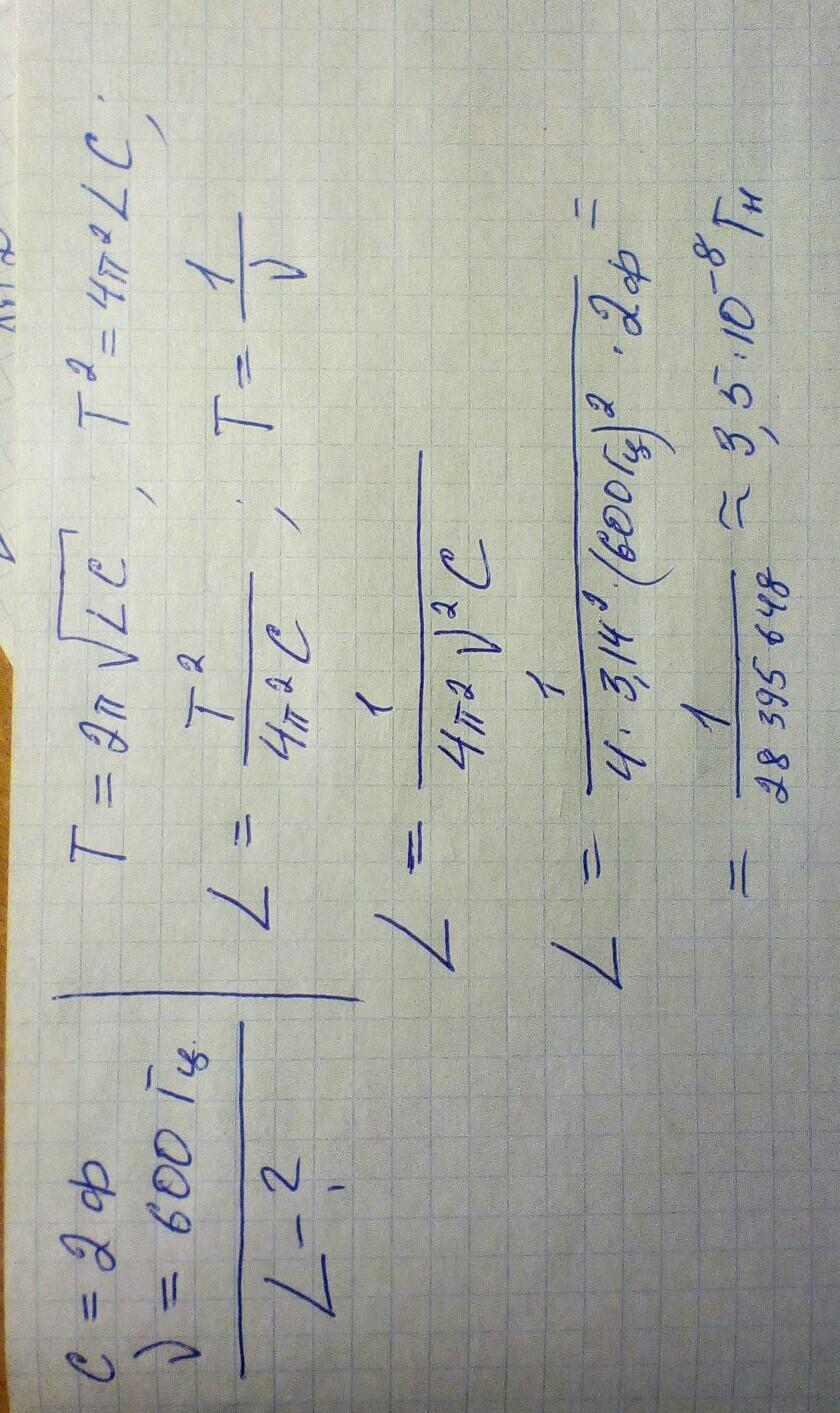 C = 2 Ф
ν = 600 Гц.
L - ?
T = 2π √LC , T² = 4π² LC ;
L = T² / 4π² C ; T = 1 / ν
L = 1 / 4π² ν² C
L = 1 / 4 · 3,14² · (600 Гц)² · 2 Ф =
= 1 / 28 395 648 ≈ 3,5 · 10⁻⁸ Гн